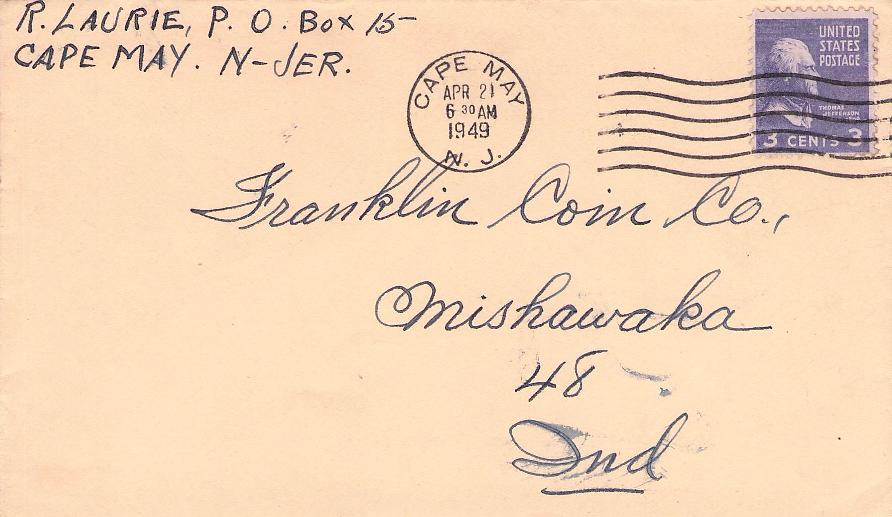 R. LAURIE, P. O. Box 15
CAPE MAY. N-JER.
CAPE MAY
APR 21
6 30 AM
1949
N. J.
UNITED
STATES
POSTAGE
THOMAS
JEFFERSON
3 CENTS 3
Franklin Coin Co.,
Mishawaka
48
Ind